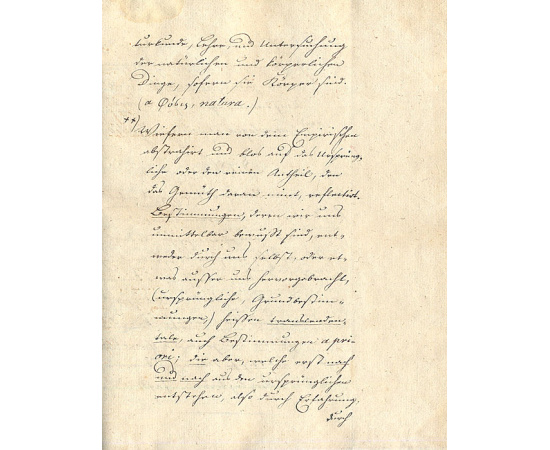 turkunde, Lehre, und Untersuchung
der natürlichen und körperlichen
Dinge, sofern sie Körper sind.
(a Φύσις, natura.)
**) Wiefern man von dem Empirischen
abstrahirt und blos auf das Ursprüng-
liche oder den reinen Antheil, den
das Gemüth daran nimt, reflectirt.
Bestimmungen, deren wir uns
unmittelbar bewußt sind, ent-
weder durch uns selbst, oder et-
was ausser uns hervorgebracht,
(ursprüngliche, Grundbestim-
mungen,) heissen transcenden-
tale, auch Bestimmungen a pri-
ori; die aber, welche erst nach
und nach aus den ursprünglichen
entstehen, also durch Erfahrung,
durch